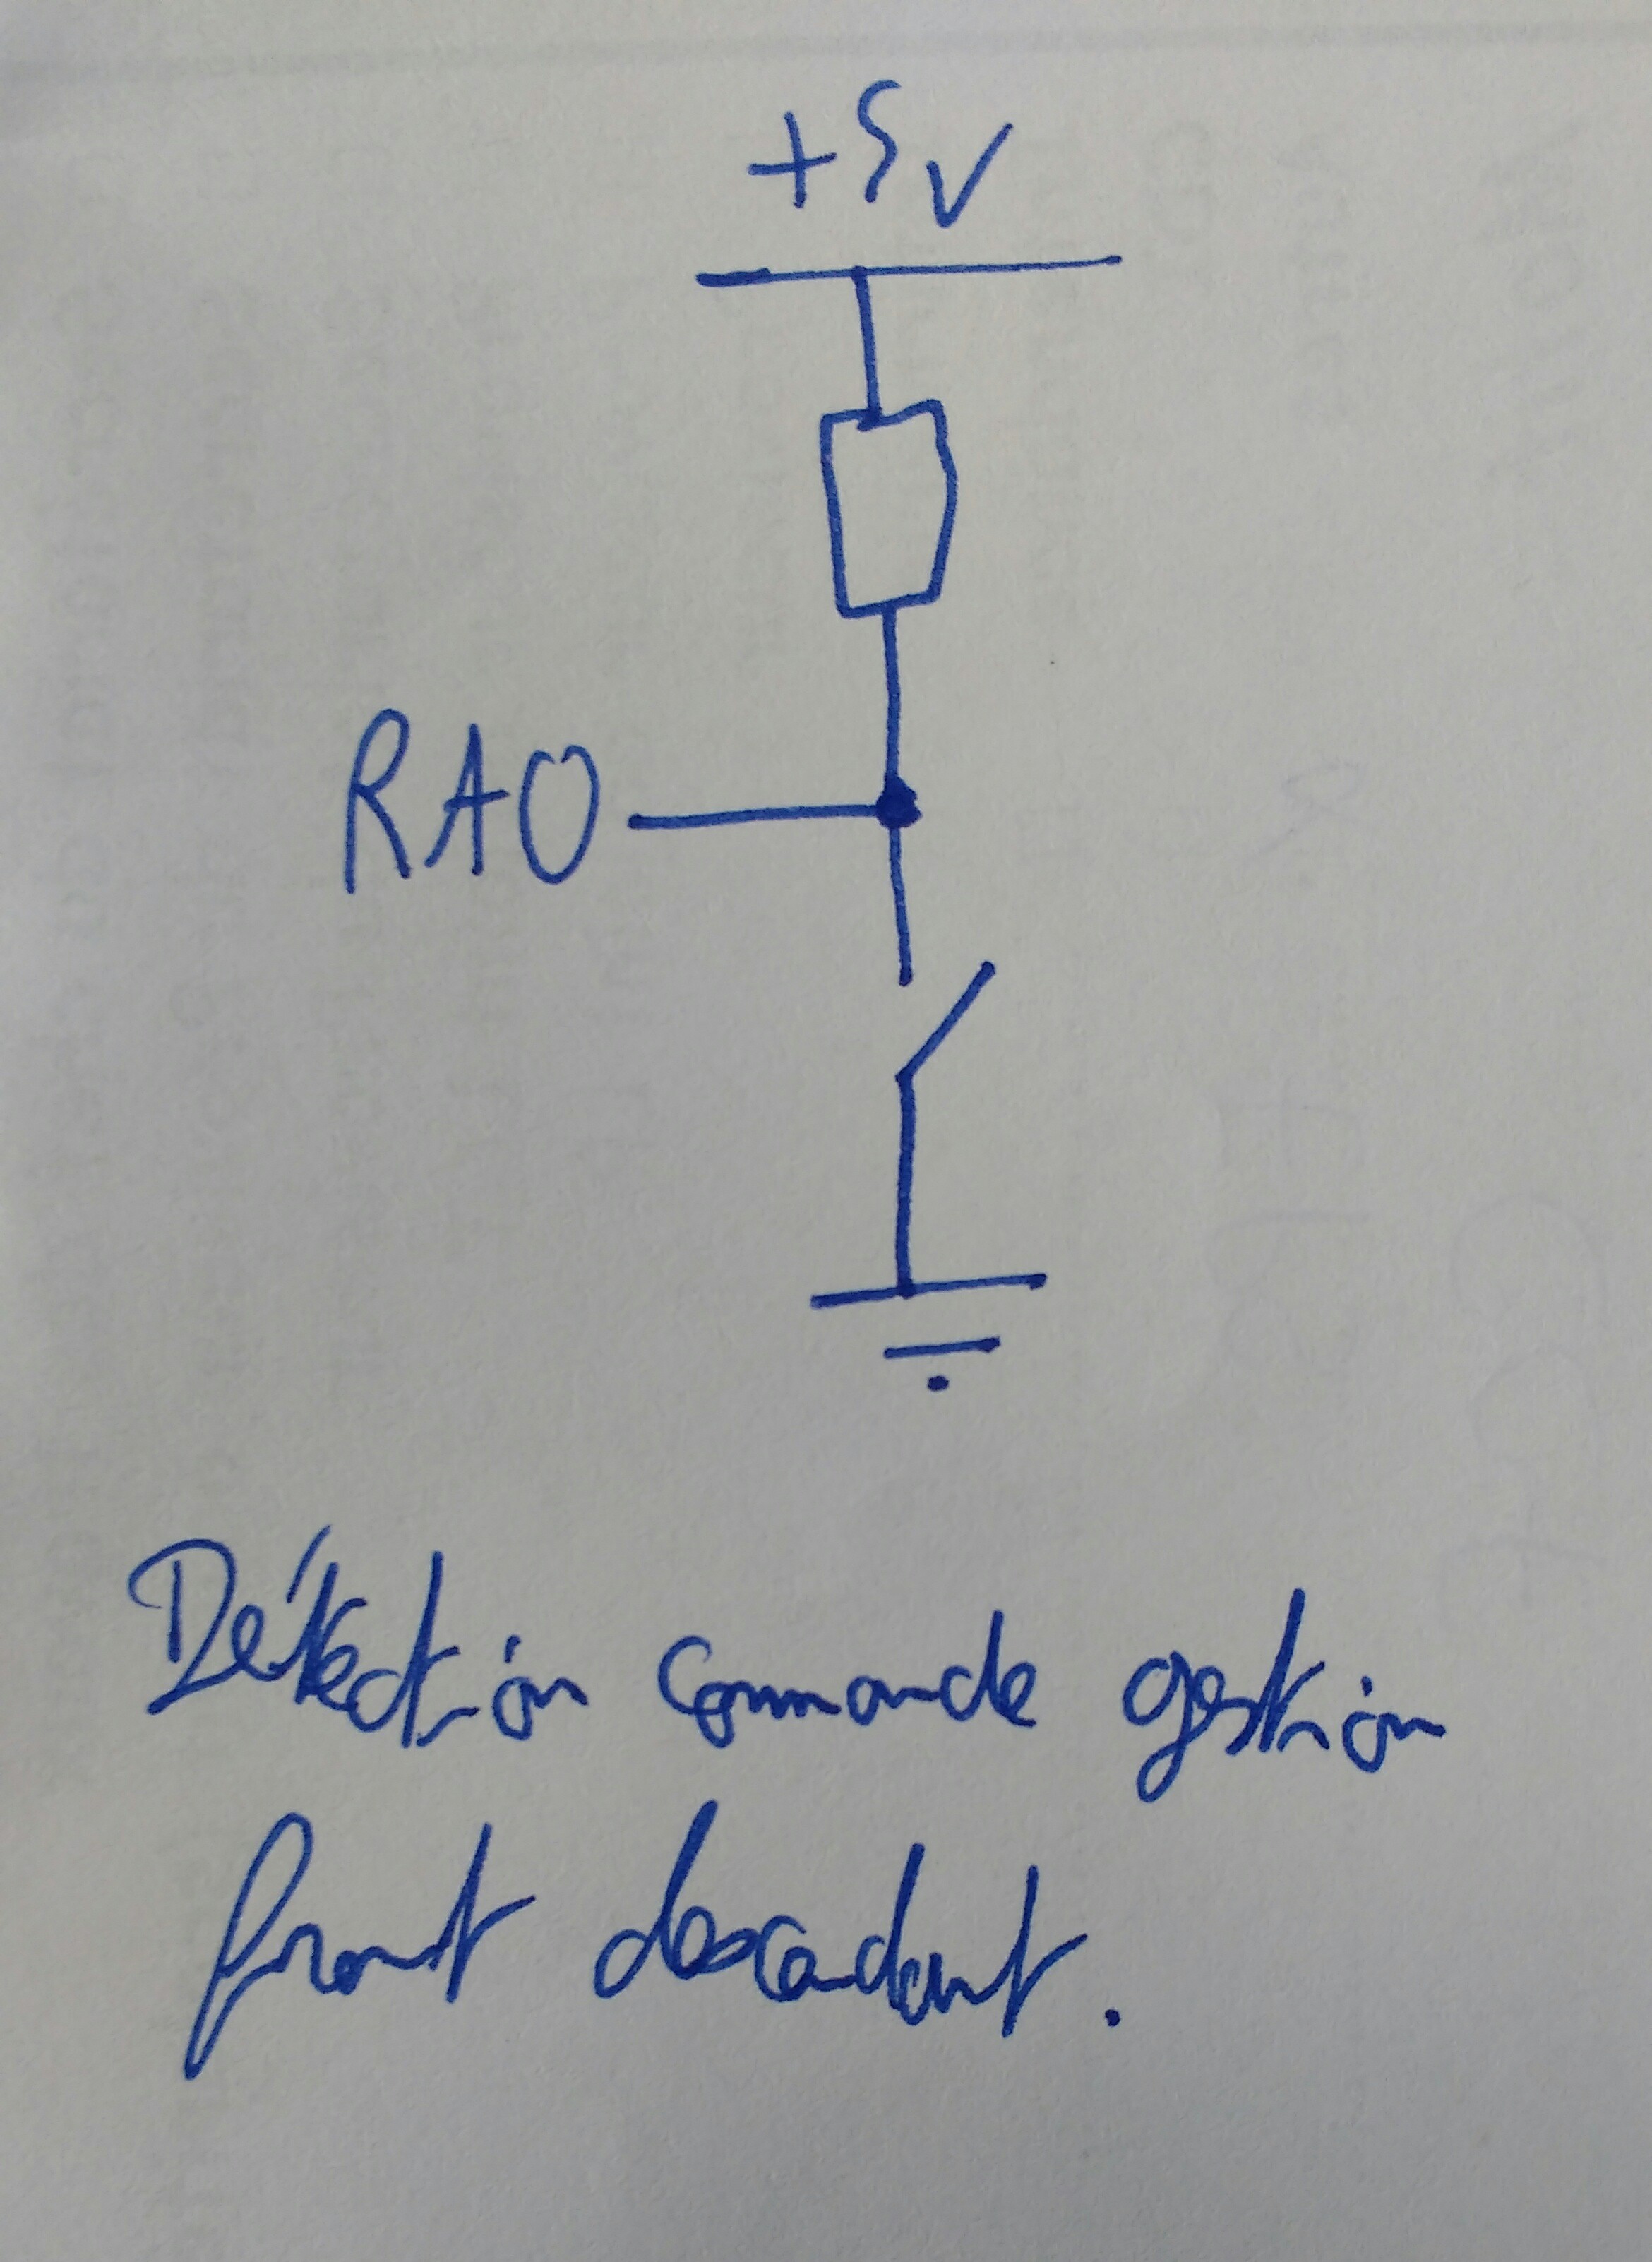 +5V
RAO
Détection commande gestion
front descendant.